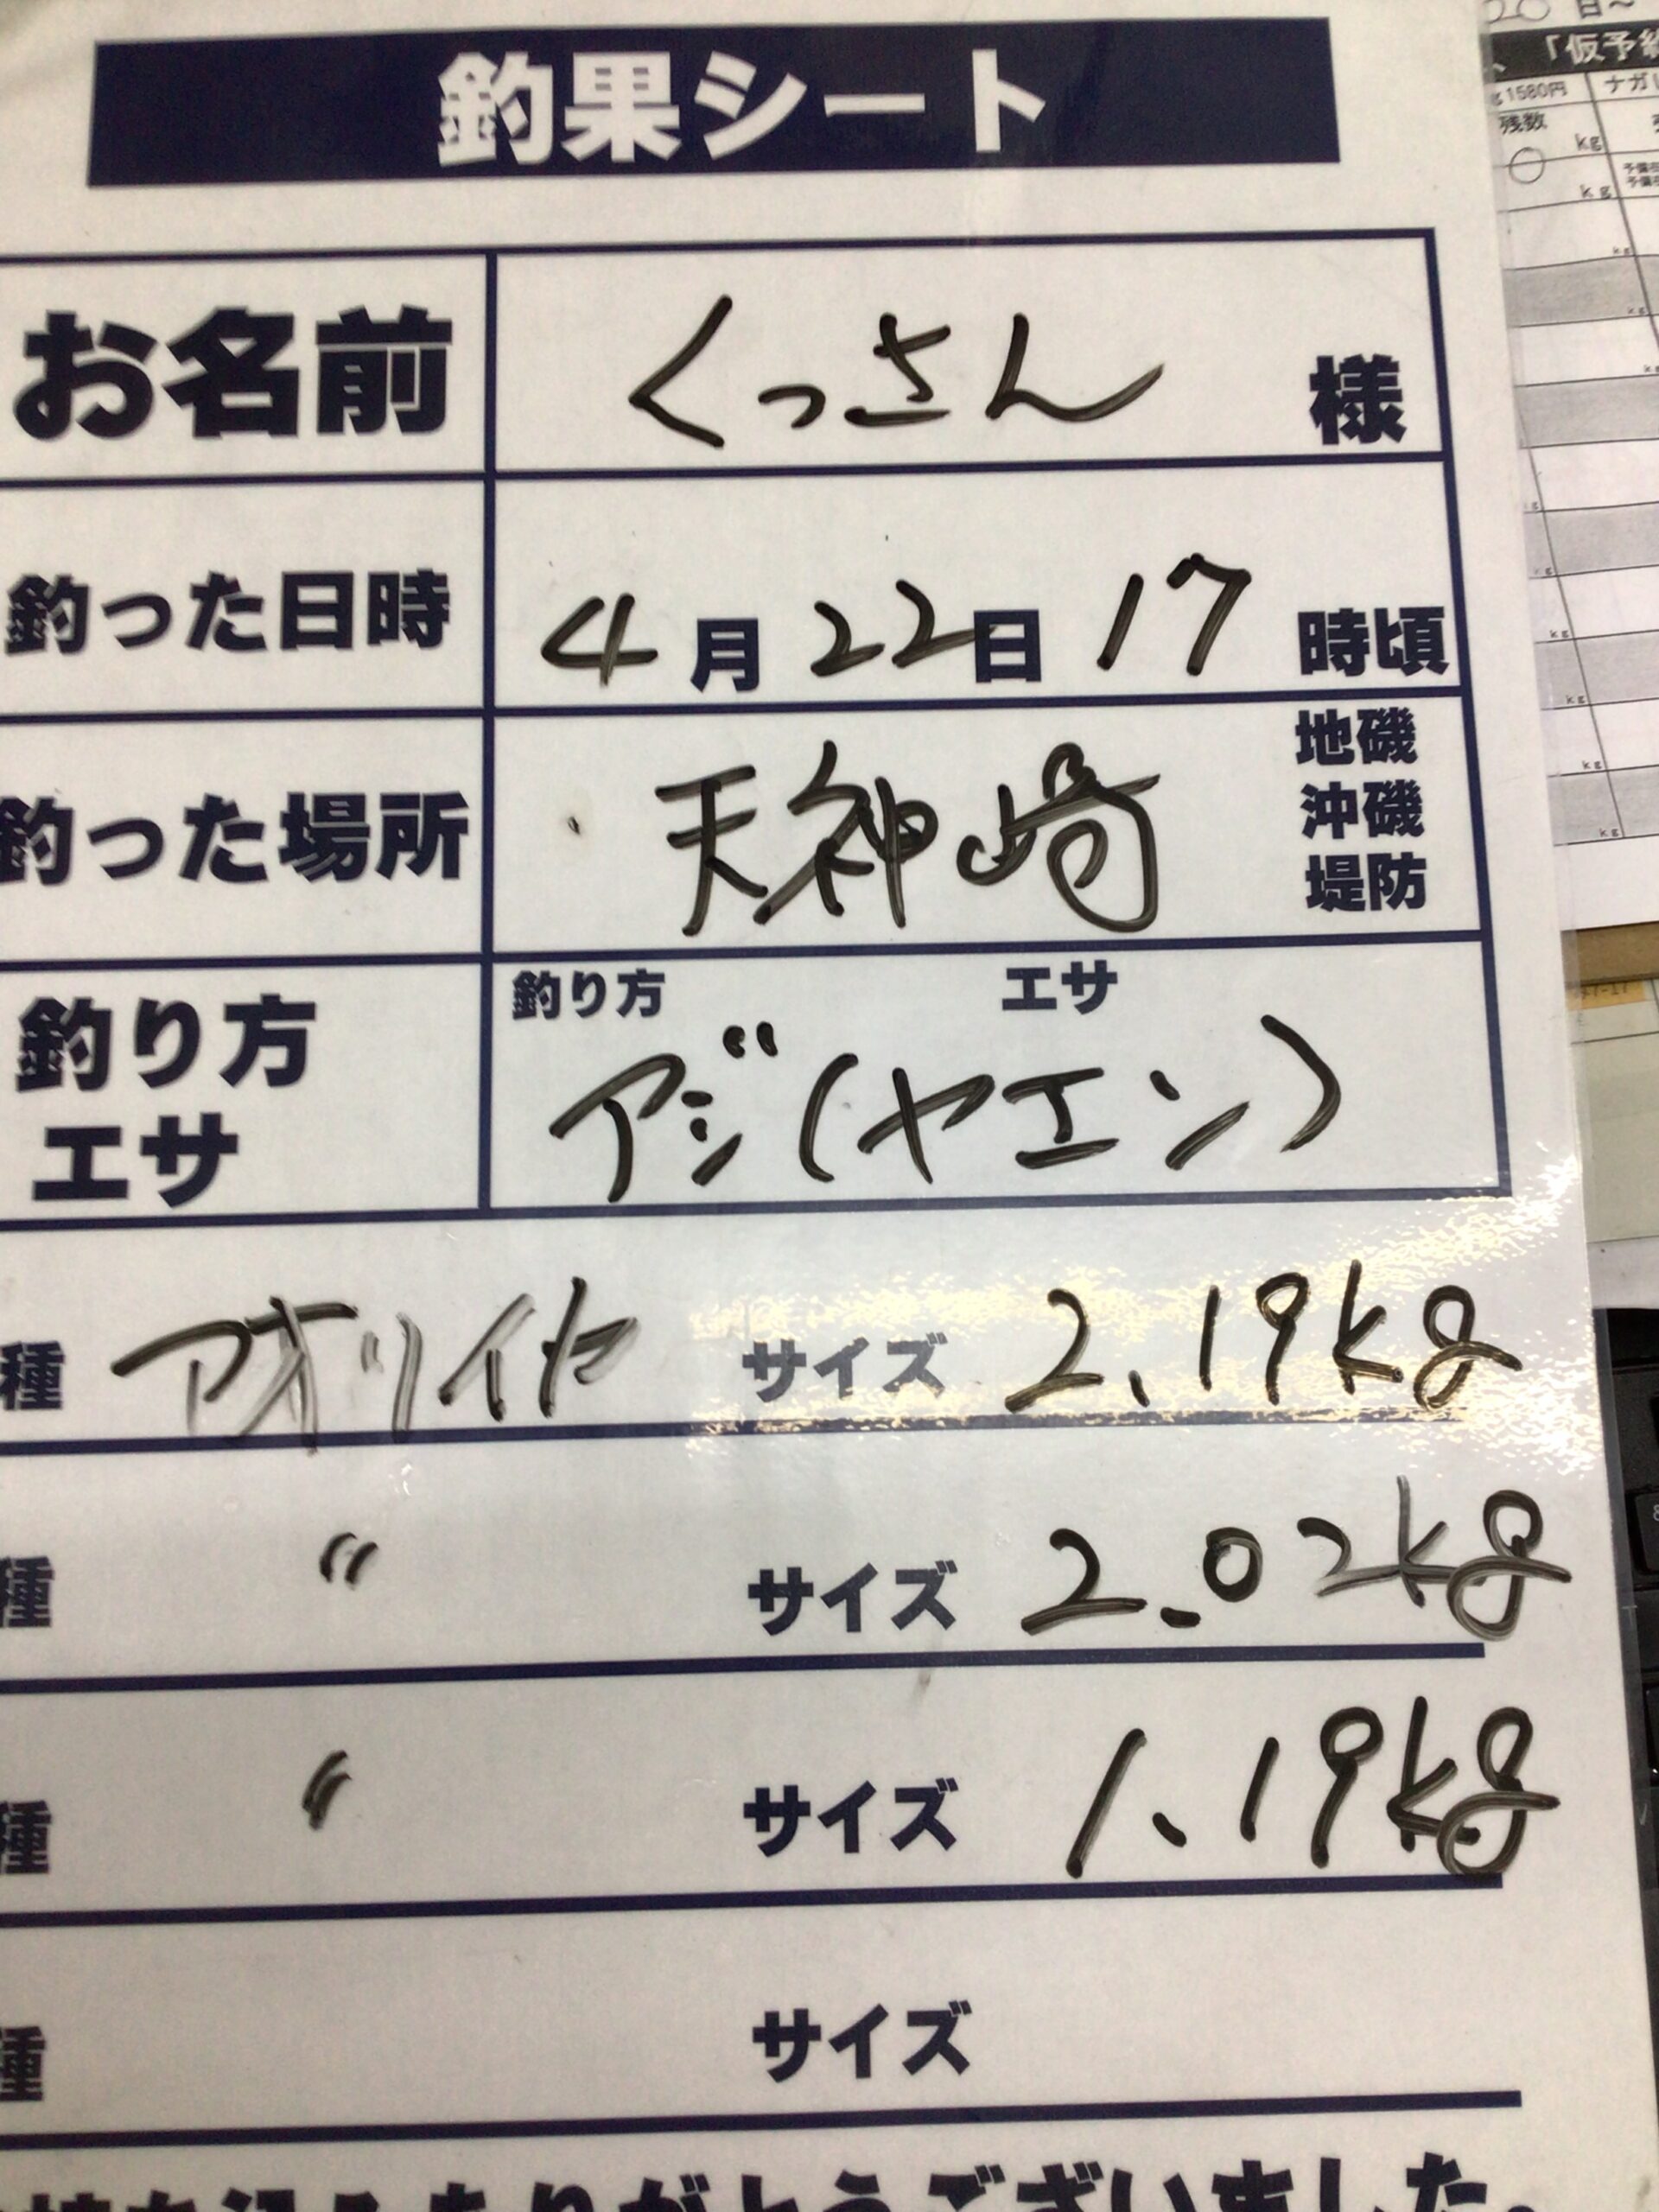 釣果シート
お名前 くっさん 様
釣った日時 4月22日17時頃
釣った場所 天神崎 地磯 沖磯 堤防
釣り方 エサ
釣り方 エサ
アジ(ヤエン)
種 アオリイカ サイズ 2.19kg
種 〃 サイズ 2.02kg
種 〃 サイズ 1.19kg
種 サイズ
ありがとうございました。
日~
「仮予約
1580円 ナガレ
残数
kg
kg